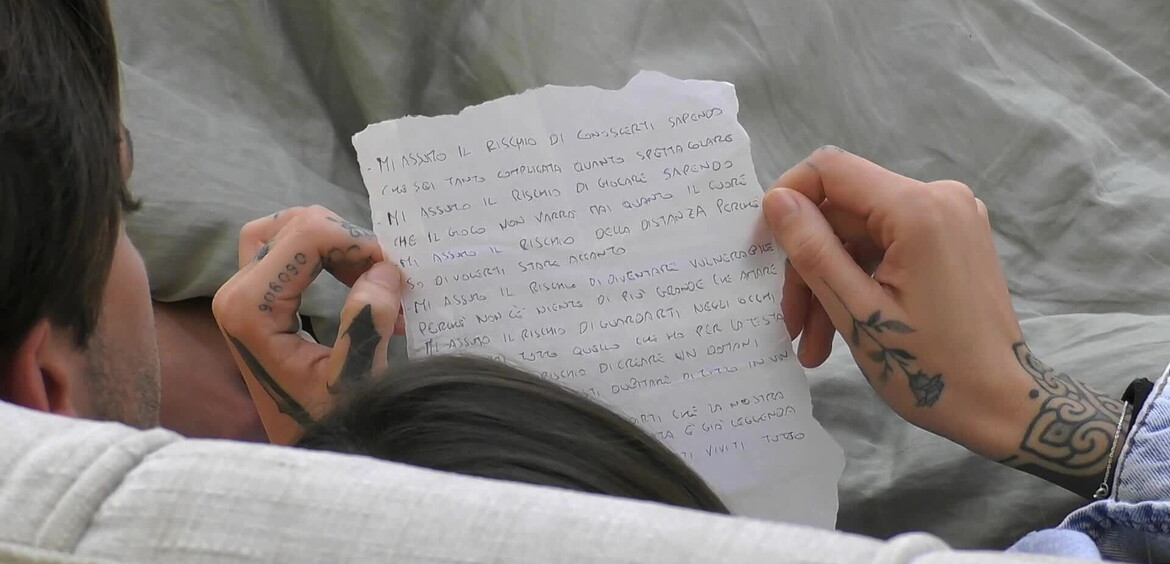 - MI ASSUMO IL RISCHIO DI CONOSCERTI SAPENDO
CHE SEI TANTO COMPLICATA QUANTO SPETTACOLARE
MI ASSUMO IL RISCHIO DI GIOCARE SAPENDO
CHE IL GIOCO NON VARRÀ MAI QUANTO IL CUORE
MI ASSUMO IL RISCHIO DELLA DISTANZA PERCHÉ
SO DI VOLERTI STARE ACCANTO
- MI ASSUMO IL RISCHIO DI DIVENTARE VULNERABILE
PERCHÉ NON C'È NIENTE DI PIÙ GRANDE CHE AMARE
MI ASSUMO IL RISCHIO DI GUARDARTI NEGLI OCCHI
TUTTO QUELLO CHE HO PER LA TESTA
RISCHIO DI CREARE UN DOMANI
DUBITARE DI TUTTO IN UN
CHE LA NOSTRA
È GIÀ LEGGENDA
VIVITI TUTTO
090906